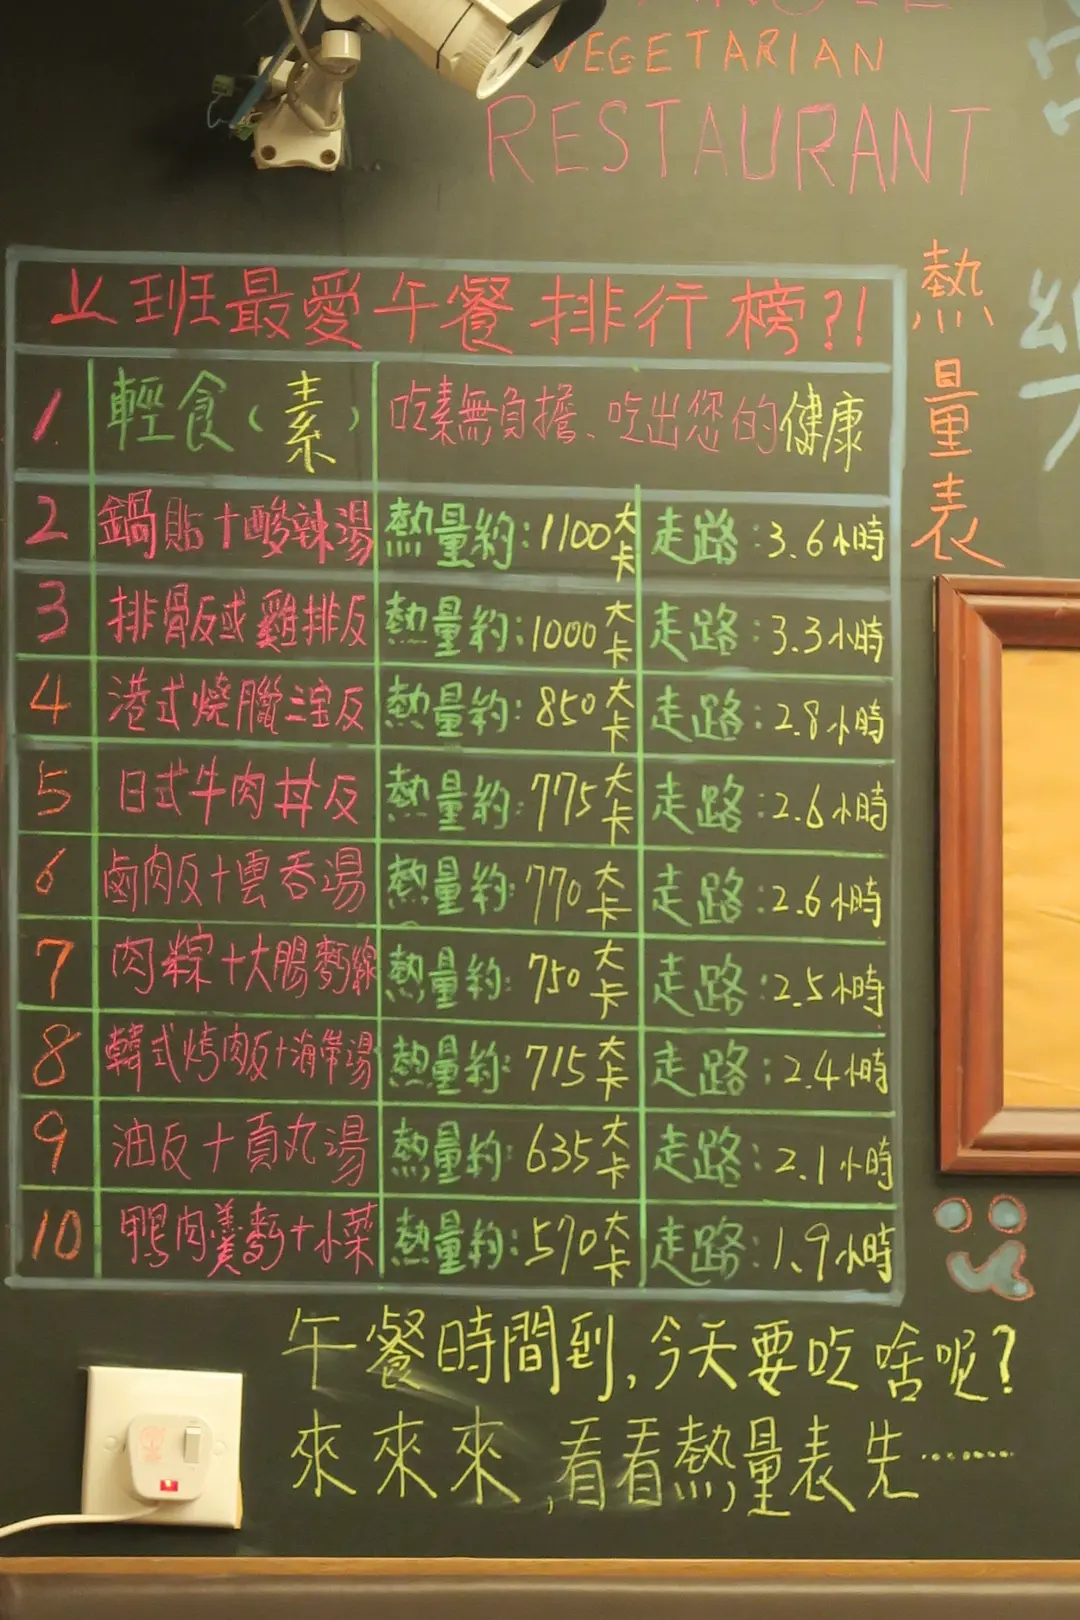 VEGETARIAN
RESTAURANT
熱量表
上班最愛午餐排行榜?!
1. 輕食(素) 吃素無負擔、吃出您的健康
2 鍋貼+酸辣湯 熱量約:1100大卡 走路:3.6小時
3 排骨反或雞排反 熱量約:1000大卡 走路:3.3小時
4 港式燒臘三宝反 熱量約:850大卡 走路:2.8小時
5 日式牛肉丼反 熱量約:775大卡 走路:2.6小時
6 鹵肉反+雲吞湯 熱量約:770大卡 走路:2.6小時
7 肉粽+大腸麵線 熱量約:750大卡 走路:2.5小時
8 韓式烤肉反+海帶湯 熱量約:715大卡 走路:2.4小時
9 油反+貢丸湯 熱量約:635大卡 走路:2.1小時
10 鴨肉羹麵+小菜 熱量約:570大卡 走路:1.9小時
午餐時間到,今天要吃啥呢?
來來來,看看熱量表先………